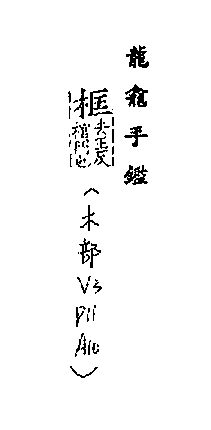 龍龕手鑑
框
去王反
棺門也
(木部 V3 P11 A10)